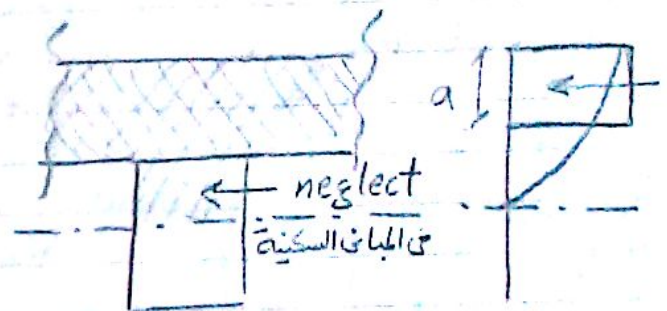 a
neglect
فى المبانى السكنية